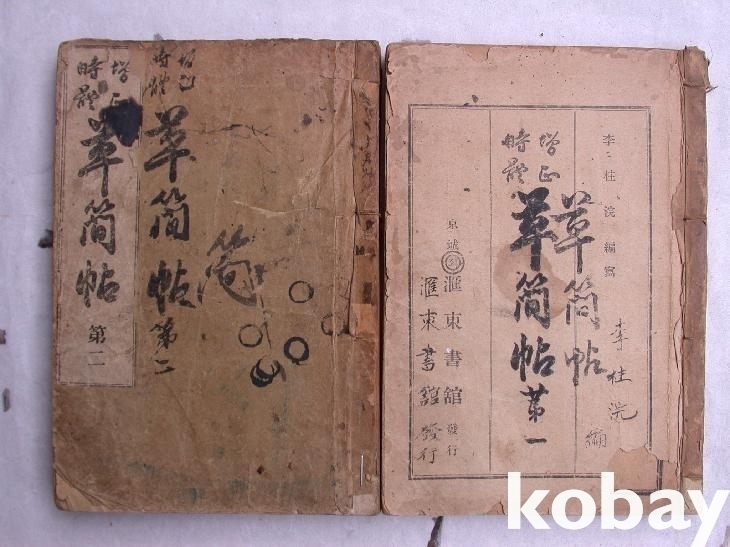 增正
時體
草簡帖
第二
增正
時體
草簡帖
第二
簡
李柱浣編寫
李柱浣編
草簡帖
增正
時體
草簡帖
第一
京城
滙東書舘發行
滙東書舘發行
kobay